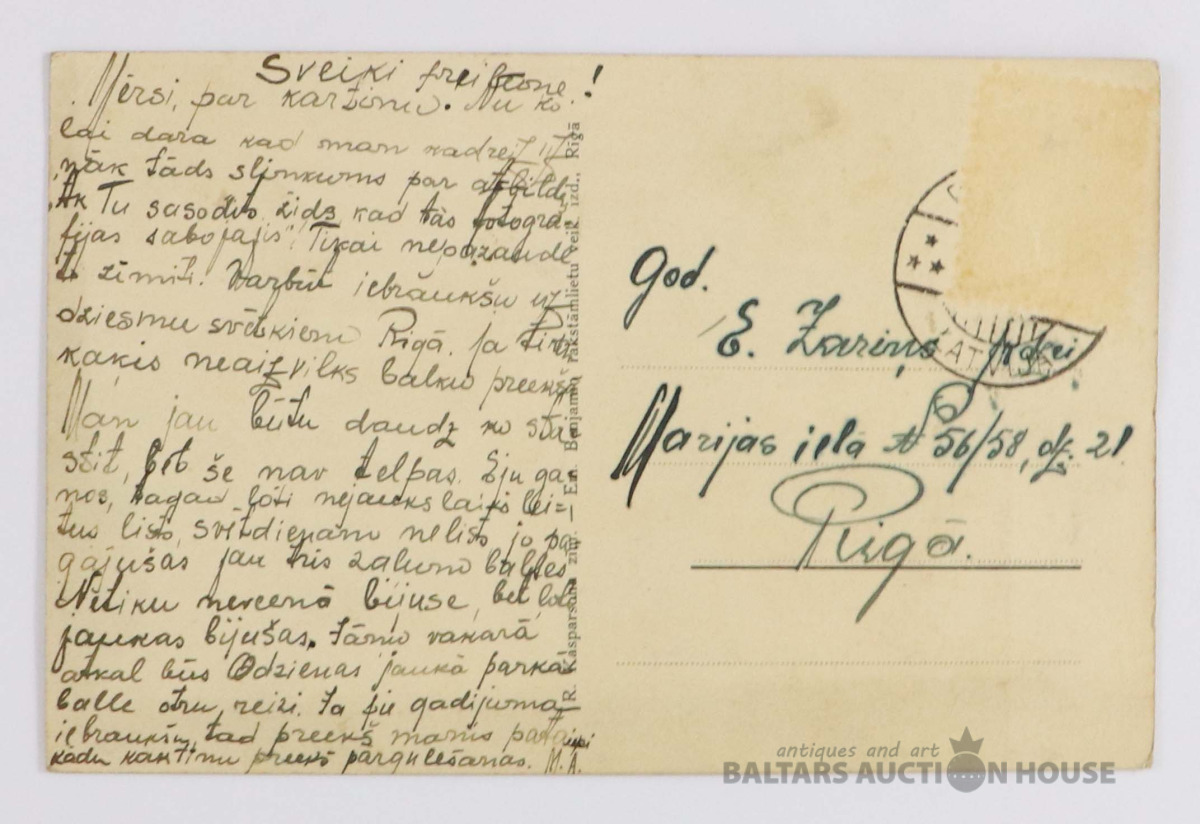 Sveiki
Mērsi, par kartinu. Nu ko
lai dara kad man kādreiz uz
nāk tāds slinkums par atbildi
"Ak Tu sasodits žids kad tās fotogra-
fijas sabojājis". Tikai nepazaudē
to zīmiti. Varbūt iebraukšu uz
dziesmu svētkiem Rigā. Ja
kaķis neaizvilks balku preekšā
Man jau būtu daudz ko stā-
stit, bet še nav telpas. Eju ga-
nos, tagad loti nejauks laiks lei-
tus lists, svētdienām nelists jo pa-
gājušas jau tris zaļumo balles
Netiku neveenā bijuse, bet loti
jaukas bijušas. Jāņu vakarā
atkal būs Odzienas jaukā parkā
balle otru reizi. Ja pie gadijuma
iebraukšu, tad preekš manis
kādu kaktinu preekš pārgulēšanas. M. A.
R. Kasparsona zīm. — Em. Benjamiņ rakstāmlietu veik. izd., Rīgā
God.
E. Zariņš
Marijas ielā № 56/58, dz. 21
Rigā.
LATVIJA
antiques and art
BALTARS AUCTION HOUSE